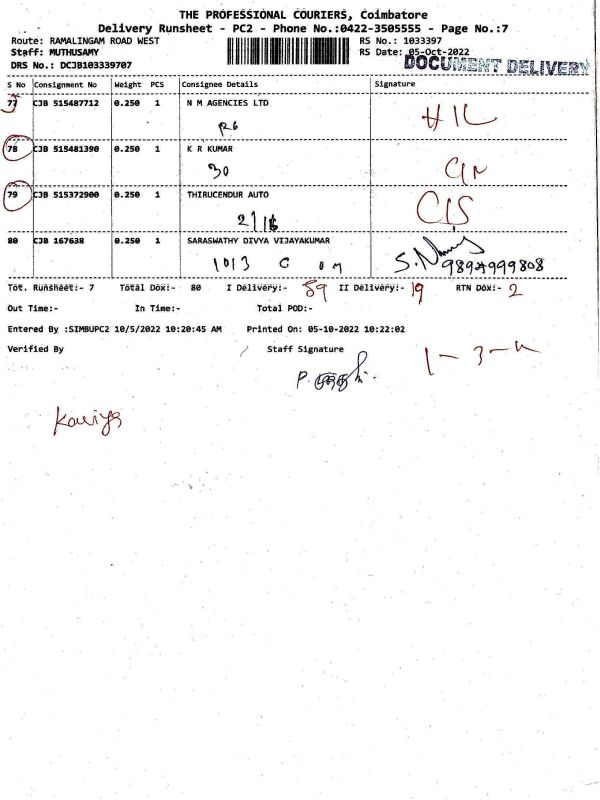 THE PROFESSIONAL COURIERS, Coimbatore
Delivery Runsheet - PC2 - Phone No.:0422-3505555 - Page No.:7
Route: RAMALINGAM ROAD WEST RS No.: 1033397
Staff: MUTHUSAMY RS Date: 05-Oct-2022
DOCUMENT DELIVERY
DRS No.: DCJB103339707
S No Consignment No Weight PCS Consignee Details Signature
77 CJB 515487712 0.250 1 N M AGENCIES LTD
R6
78 CJB 515481390 0.250 1 K R KUMAR
30
79 CJB 515372900 0.250 1 THIRUCENDUR AUTO
2/16
80 CJB 167638 0.250 1 SARASWATHY DIVYA VIJAYAKUMAR
1013 C
Tot. Runsheet:- 7 Total Dox:- 80 I Delivery:- 59 II Delivery:- 19 RTN Dox:- 2
Out Time:- In Time:- Total POD:-
Entered By :SIMBUPC2 10/5/2022 10:20:45 AM Printed On: 05-10-2022 10:22:02
Verified By Staff Signature
Kaviya